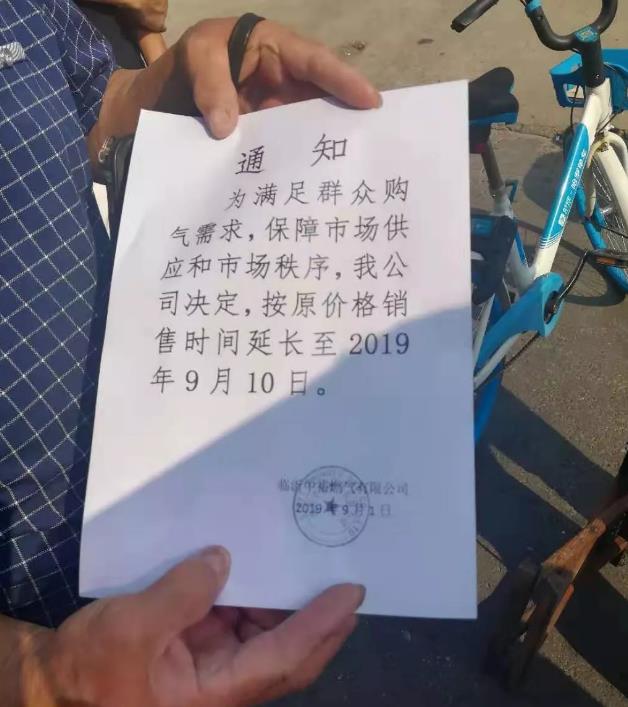 通 知
为满足群众购
气需求，保障市场供
应和市场秩序，我公
司决定，按原价格销
售时间延长至 2019
年 9 月 10 日。
临沂中裕燃气有限公司
2019 年 9 月 1 日